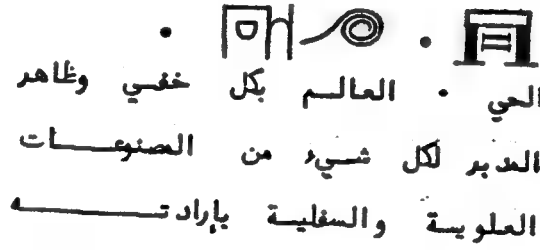 الحي • العالم بكل خفي وظاهر
المدبر لكل شيء من المصنوعات
العلوية والسفلية بإرادته